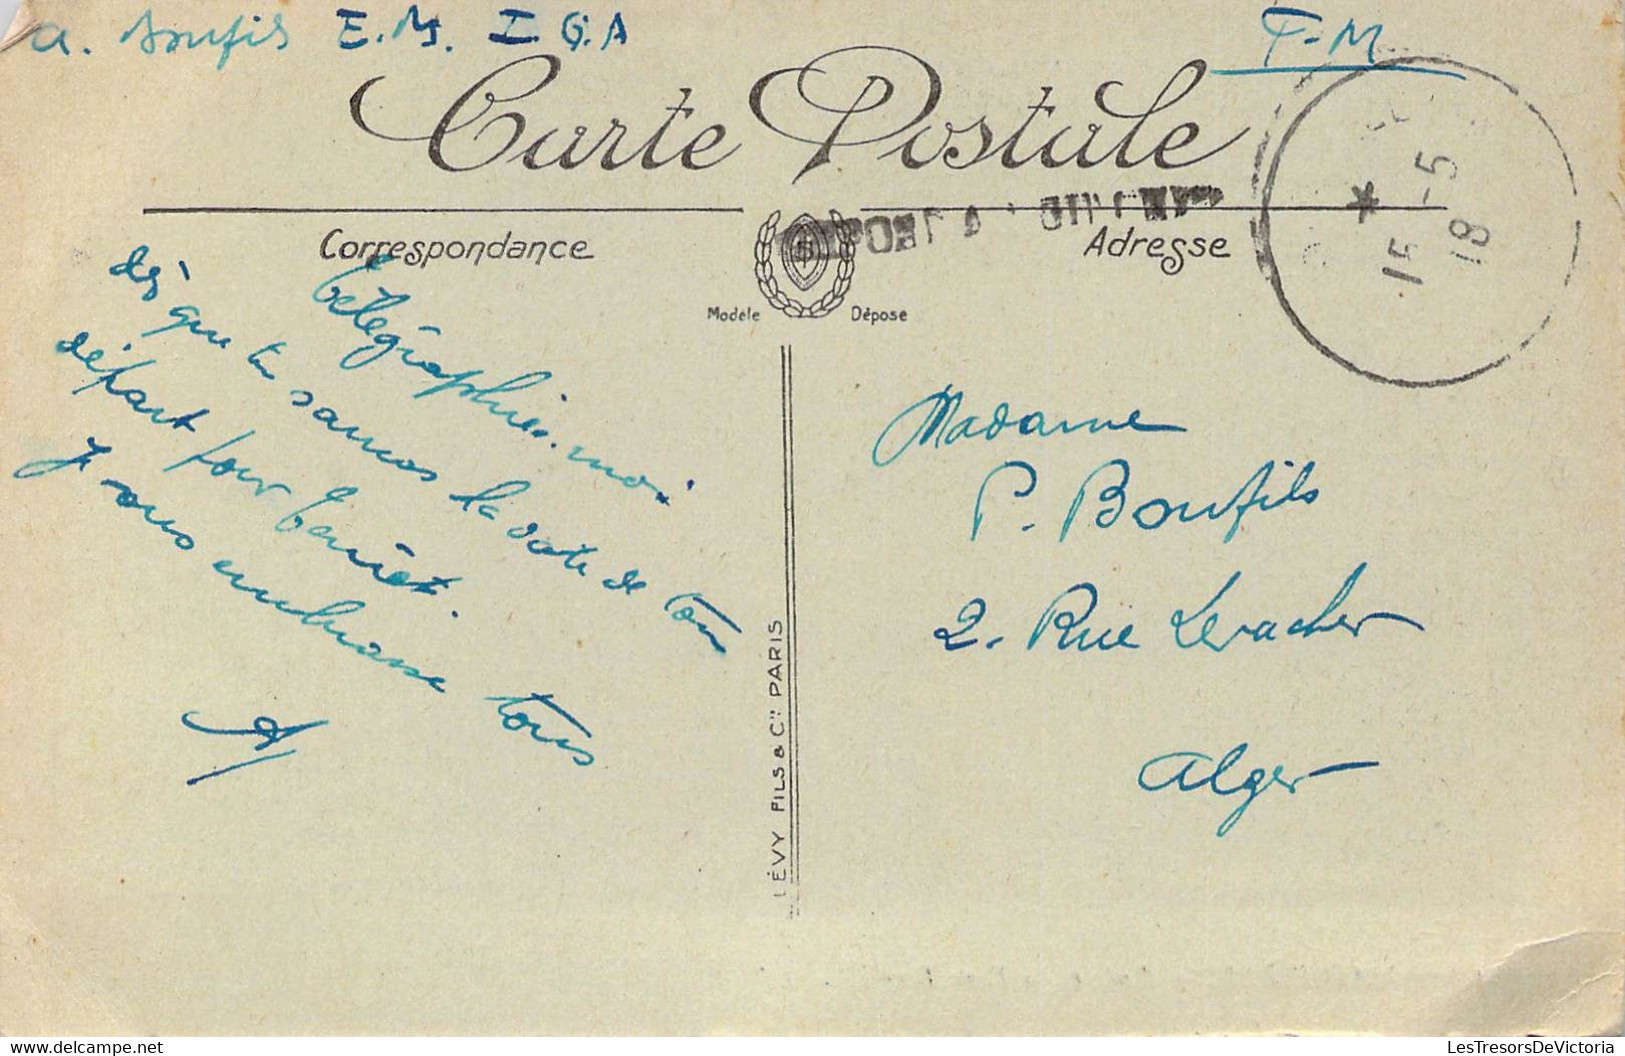 A. Bonfils E.M. I.G.A
F-M
Carte Postale
Correspondance
Adresse
Modèle Déposé
15 -5 18
Télégraphiez-moi
dès que tu sauras la date de ton
départ pour
Je vous embrasse tous
A
Madame
P. Bonfils
2. Rue Levacher
Alger
LÉVY FILS & Cie PARIS
LesTresorsDeVictoria